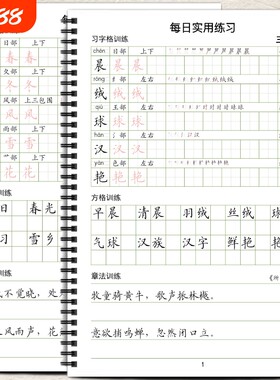 88
每日实用练习
习字格训练
三
chén 日部 上下
晨 晨 晨
róng 纟部 左右
绒 绒 绒
qiú 王部 左右
球 球 球
hàn 氵部 左右
汉 汉 汉
yàn 色部 左右
艳 艳 艳
方格训练
早晨 清晨 羽绒 丝绒 球
气球 汉族 汉字 鲜艳 艳
章法训练
《所
牧童骑黄牛，歌声振林樾。
意欲捕鸣蝉，忽然闭口立。
1
日部 上下
春 春
夂部 上下
冬 冬
风部 上三包围
风 风
雨部 上下
雪 雪
艹部 上下
花 花
训练
日 春光
习 雪乡
训练
不觉晓，处
风雨声，花